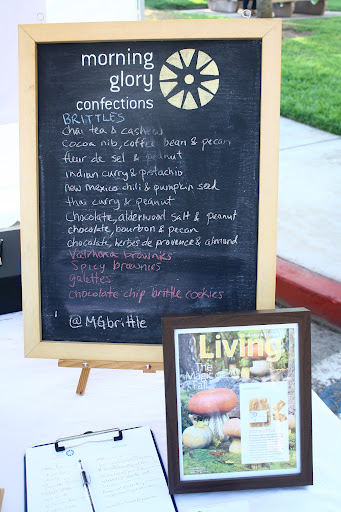 morning
glory
confections
BRITTLES
chai tea & cashew
Cocoa nib, coffee bean & pecan
fleur de sel & peanut
indian curry & pistachio
new mexico chili & pumpkin seed
thai curry & peanut
Chocolate, alderwood salt & peanut
chocolate, bourbon & pecan
chocolate, herbes de provence & almond
Valrhona brownies
Spicy brownies
galettes
chocolate chip brittle cookies
@MGbrittle
Living
The
Magic
of
Fall